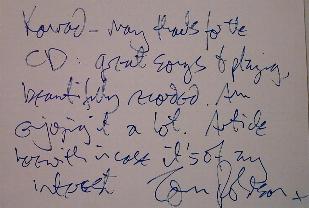 Konrad - many thanks for the
CD: great songs & playing,
beautifully recorded. Am
enjoying it a lot. Article
herewith in case it's of any
interest Tom